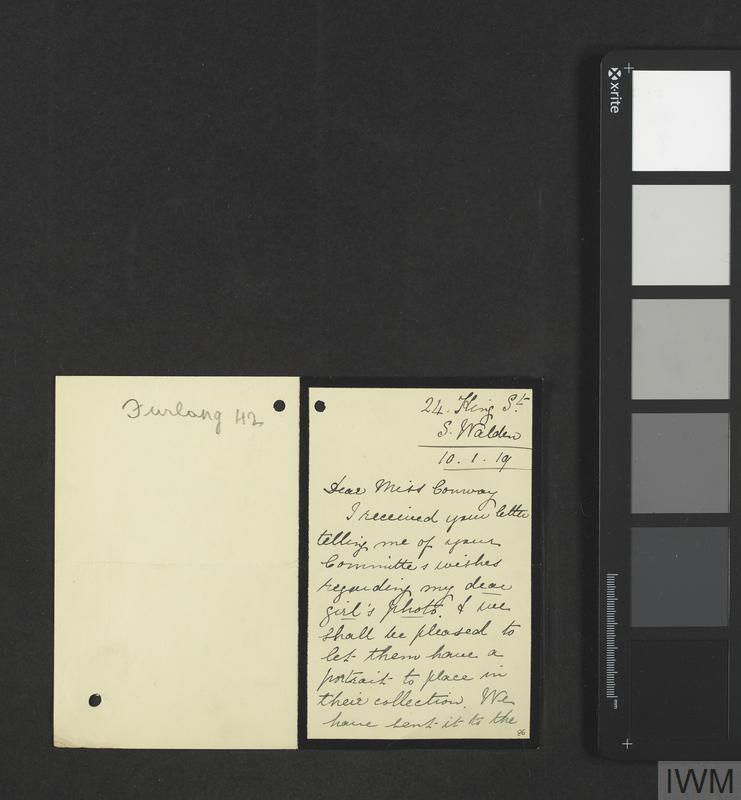 Furlong H2
24. King St.
S. Walden
10. 1. 19
Dear Miss Conway
I received your letter
telling me of your
Committe's wishes
regarding my dear
girl's photo. & we
shall be pleased to
let them have a
portrait to place in
their collection. We
have sent it to the
86
x-rite
mm
IWM